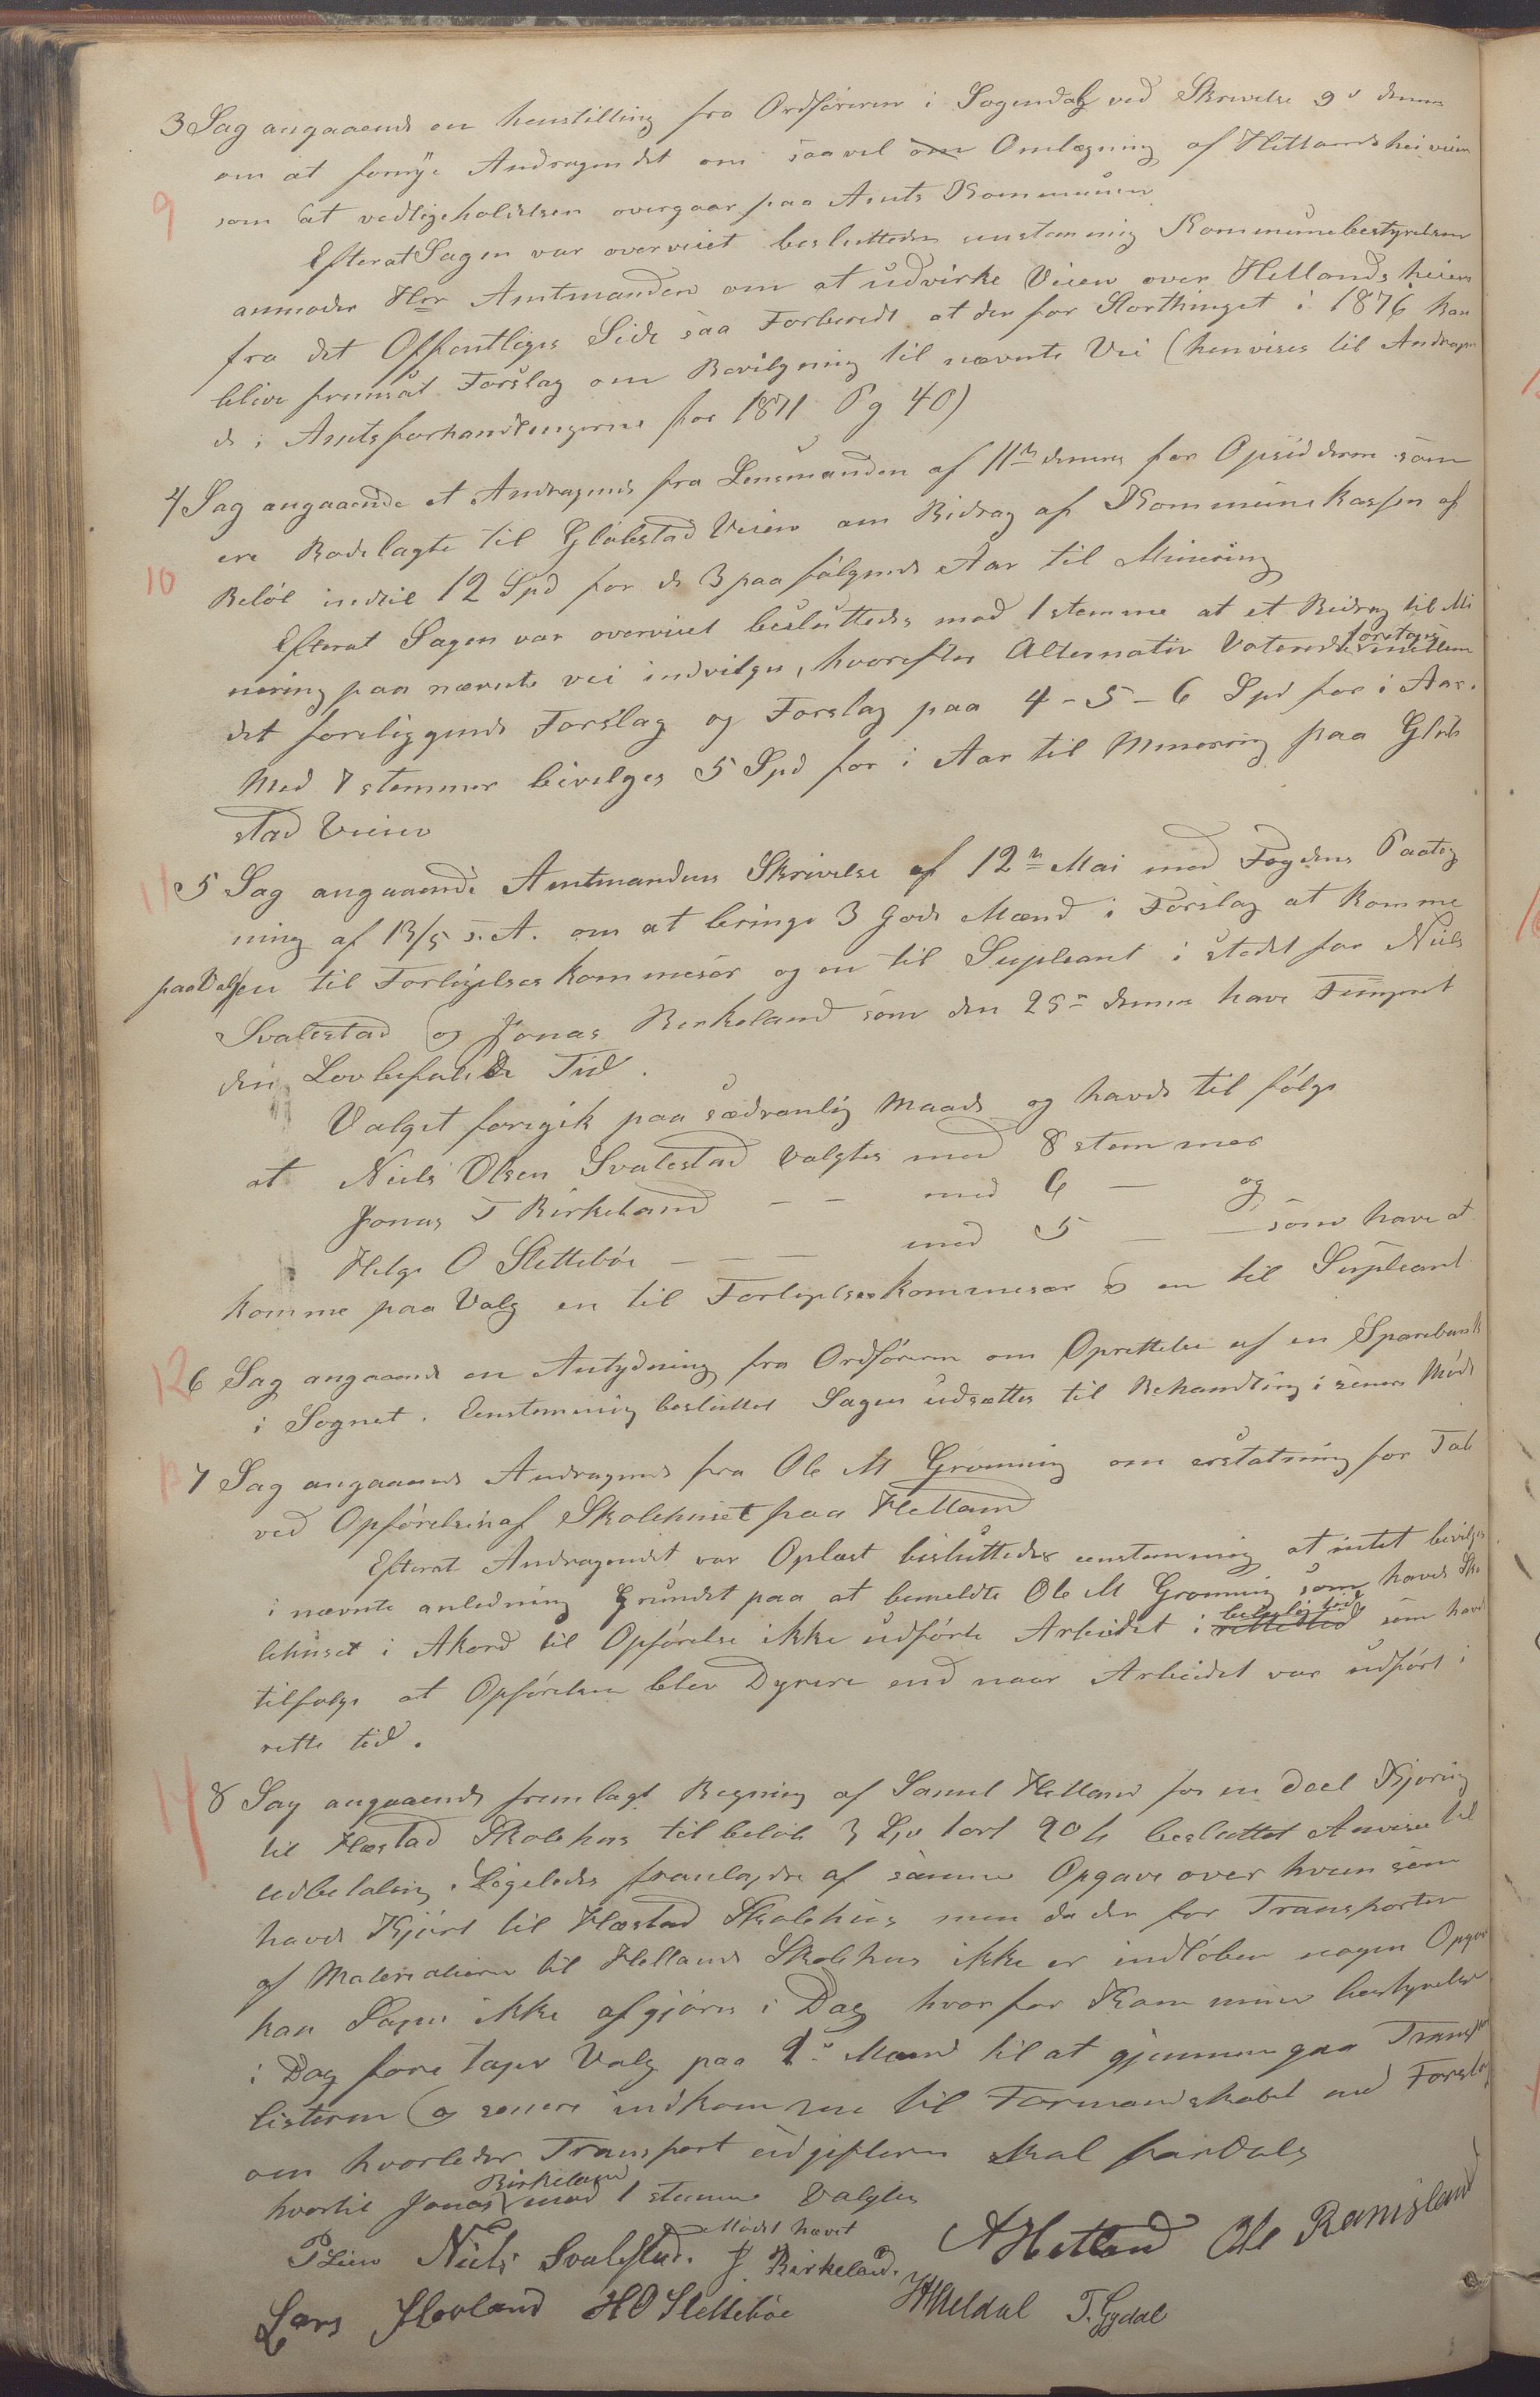 3 Sag angaaende en henstilling fra Ordföreren i Sogendal ved Skrivelse 9d dennes
om at fornye Andragendet om saavel om Omlægning af Hetlandsheiveien
9 som at vedligeholdelsen overgaar paa Amts Kommunen
Efterat Sagen var overveiet besluttedes enstemmig Kommunebestyrelsen
anmoder Hrr Amtmanden om at udvirke Veien over Hetlandsheien
fra det Offentliges Side saa Forberedt at der for Storthinget i 1876 kan
blive fremsat Forslag om Bevilgning til nævnte Vei (henvises til Andragen
de i Amtsforhandlingerne for 1871 Pg 40)
4 Sag angaaende et Andragende fra Lensmanden af 11te dennes for Opsidderne som
ere Rodelagte til Glöbestad Veien om Bidrag af Kommunekassen af
10 Belöb indtil 12 Spd for de 3 paafölgende Aar til Minering
Efterat Sagen var overveiet besluttedes mod 1 stemme at et Bidrag til Mi
nering paa nævnte vei indvilges, hvorefter Alternativ Votering foretages mellem
det foreliggende Forslag og Forslag paa 4 - 5 - 6 Spd for i Aar.
Med 7 stemmer bevilges 5 Spd for i Aar til Minering paa Glöb
stad Veien
11 5 Sag angaaende Amtmandens Skrivelse af 12te Mai med Fogdens Paateg
ning af 13/5 s. A. om at bringe 3 gode Mænd i Forslag at komme
paa Valg en til Forligelseskommesær og en til Supleant i stedet for Niels
Svalestad og Jonas Birkeland som den 25de dennes have Fungeret
den Lovbefalede Tid.
Valget foregik paa sædvanlig Maade og havde til fölge
at Niels Olsen Svalestad valgtes med 8 stemmer
Jonas T Birkeland - - med 6 — og
Helge O Sletteböe - — — med 5 — — som have at
komme paa Valg en til Forligelseskommesær og en til Supleant
12 6 Sag angaaende en Antydning fra Ordföreren om Oprettelse af en Sparebank
i Sognet. Eenstemmig besluttet Sagen udsættes til Behandling i senere Möde
13 7 Sag angaaende Andragende fra Ole M Grönning om erstatning for Tab
ved Opförelsen af Skolehuset paa Hetland
Efterat Andragendet var Oplæst besluttedes eenstemmig at intet bevilges
i nævnte anledning Grundet paa at bemeldte Ole M Gronning som havde Sko
lehuset i Akord til Opförelse ikke udförte Arbeidet i rette tid beleilig tid som havde
tilfolge at Opförelsen blev Dyrere end naar Arbeidet var udfört i
rette tid.
14 8 Sag angaaende fremlagt Regning af Samuel Hetland for en deel Kjöring
til Hæstad Skolehus til belöb 3 Spd 1 ort 20 ß besluttet Anvises til
Udbetaling. Ligeledes fremlagdes af samme Opgave over hvem som
havde Kjört til Hæstad Skolehus men da der for Transporten
af Materialierne til Hetlands Skolehus ikke er indlöben nogen Opgave
kan Sagen ikke afgjöres i Dag hvorfor Kommune bestyrelsen
i Dag foretager Valg paa 1 Mand til at gjennemgaa Transport
listerne og senere indkomme til Formandskabet med Forslag
om hvorledes Transport udgifterne skal fordeles
hvortil Jonas Birkeland mod 1 stemme Valgtes
Mödet hævet
P Lien Niels Svalestad. J. Birkeland. A Hetland Ole Ramsland
Lars Hovland HO Slettebøe T. Gydal